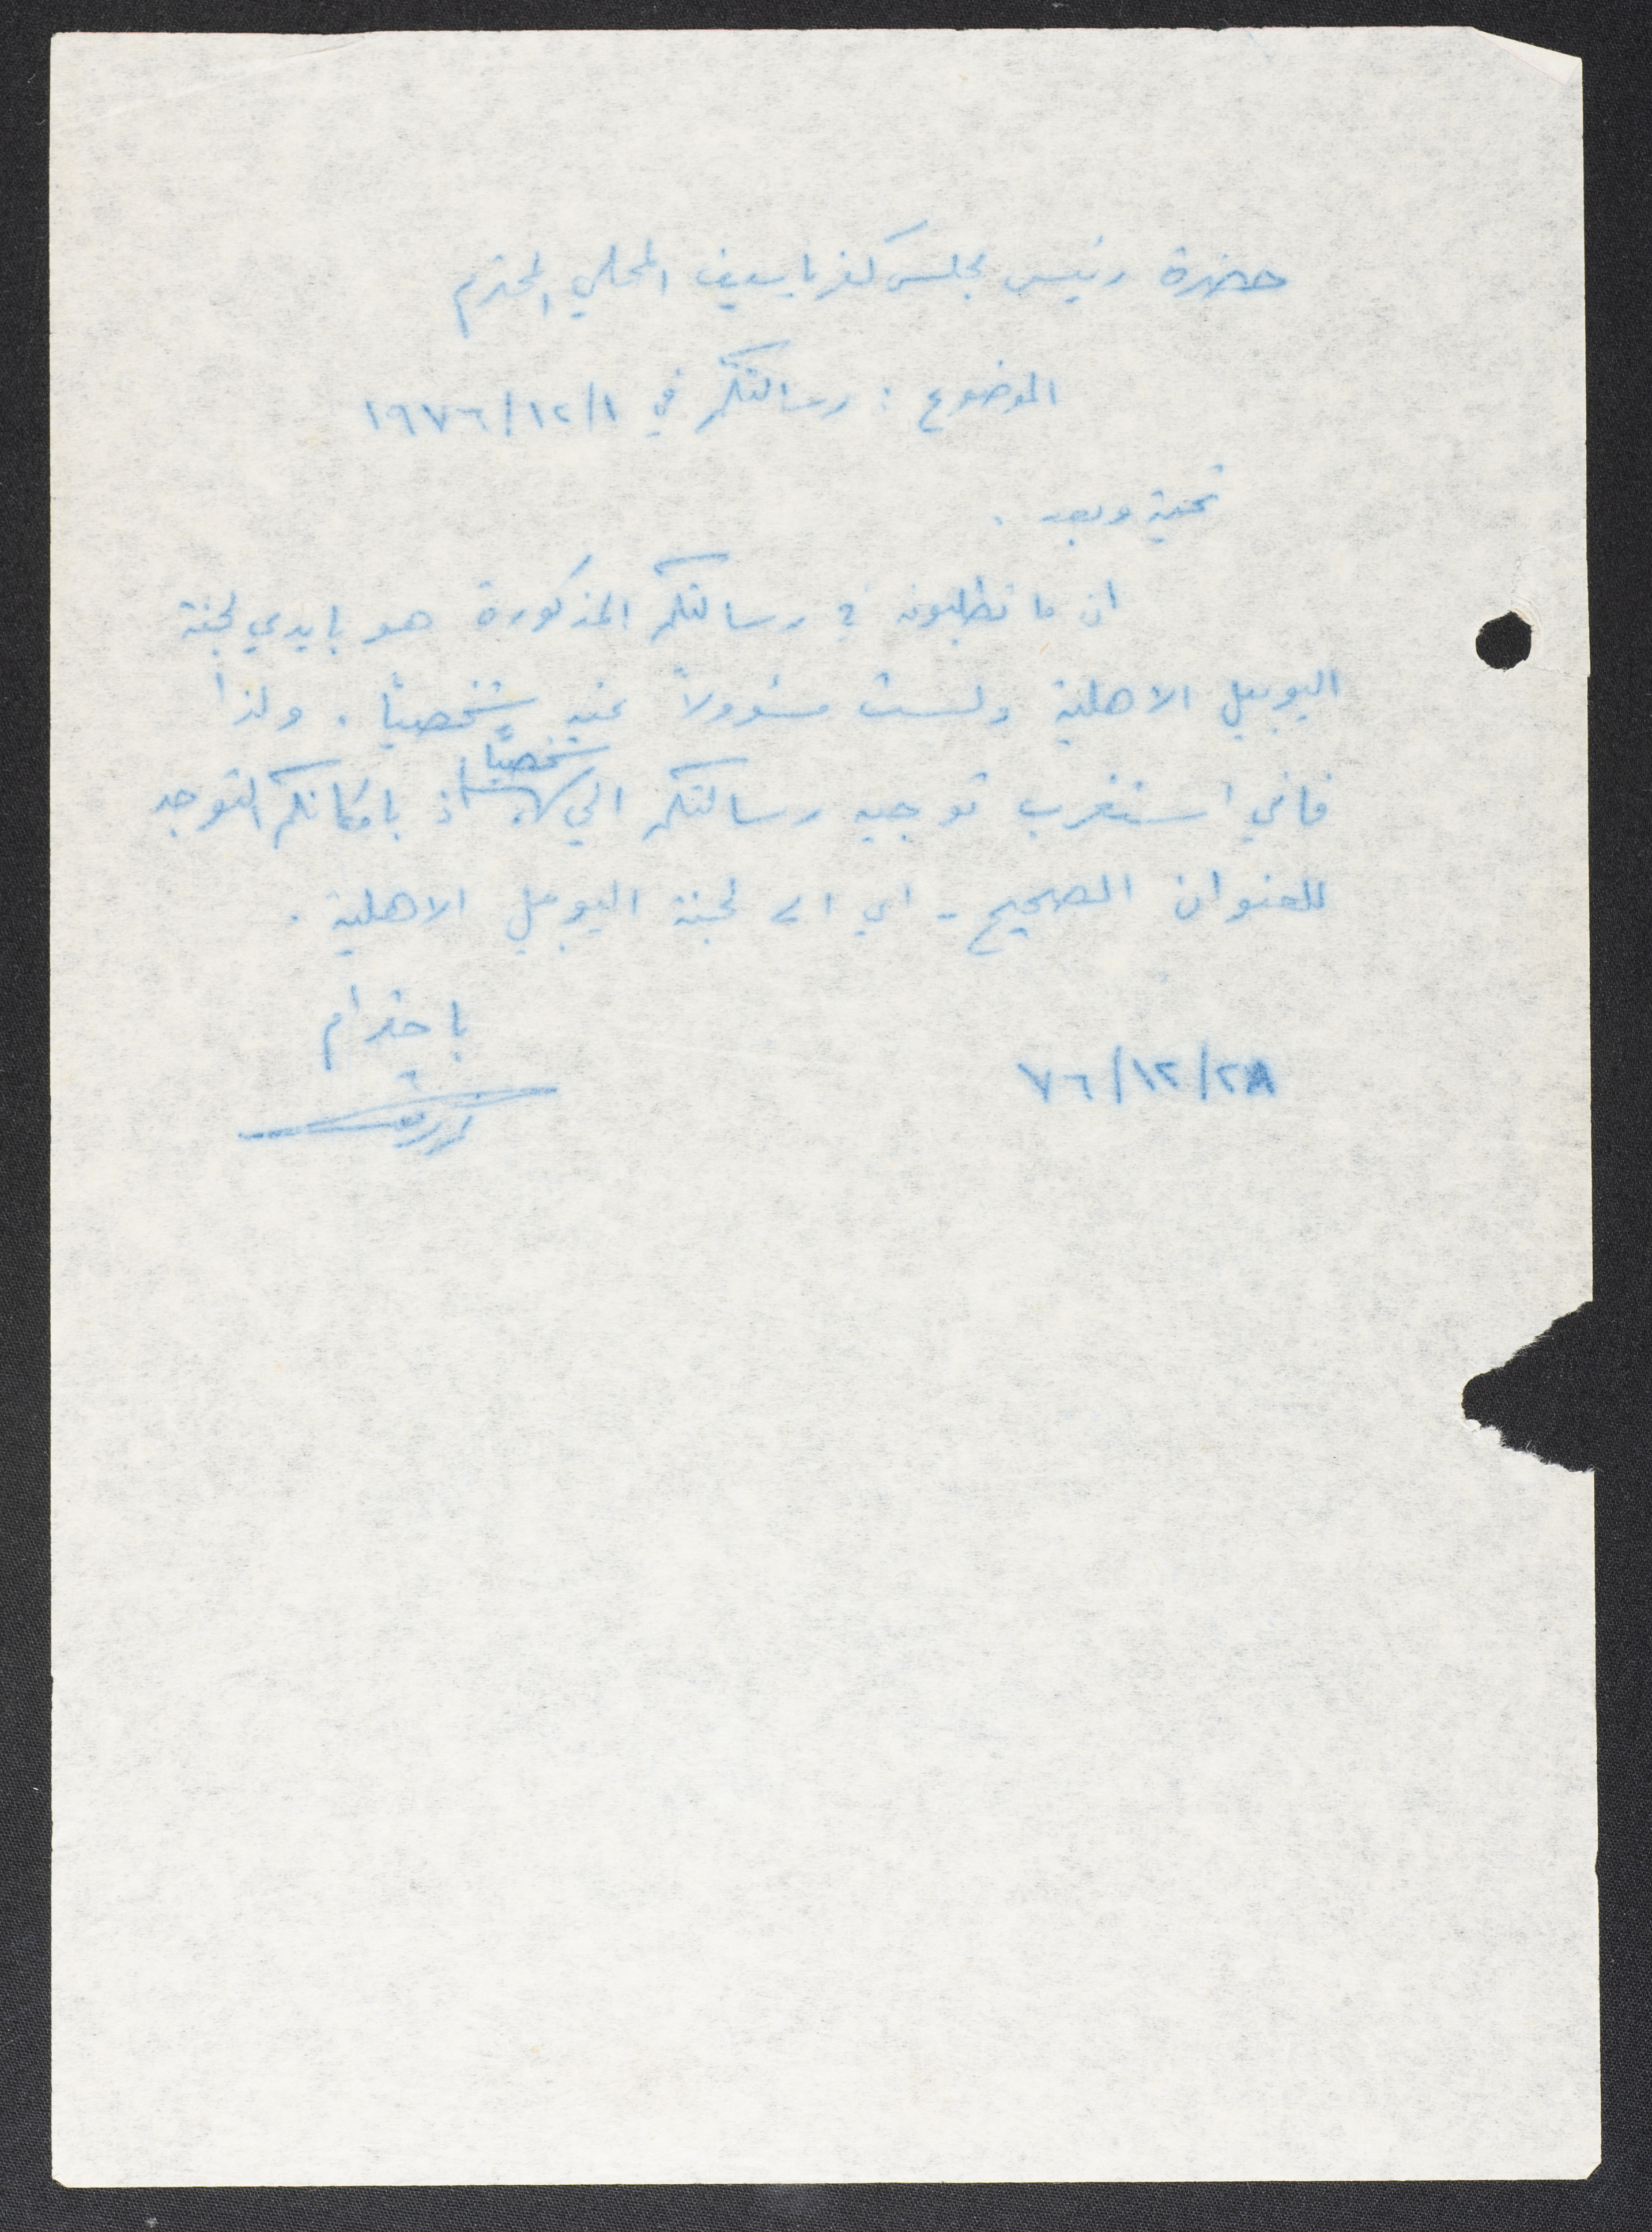 حضرة رئيس مجلس كفرياسيف المحلي المحترم
الموضوع : رسالتكم في ١٩٧٦/١٢/١
تحية وبعد .
ان ما تطلبونه في رسالتكم المذكورة هو بايدي لجنة
اليوبيل الاهلية ولست مسؤولاً عنه شخصياً . ولذا
فاني استغرب توجيه رسالتكم الي شخصياً اذ بامكانكم التوجه
للعنوان الصحيح - اي الى لجنة اليوبيل الاهلية .
باحترام
٧٦/١٢/٢٨